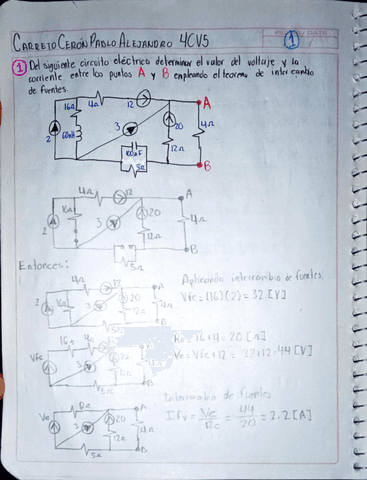 CARRETO CERÓN PABLO ALEJANDRO 4CV5
1
1 Del siguiente circuito eléctrico determinar el valor del voltaje y la
corriente entre los puntos A y B empleando el teorema de intercambio
de fuentes.
16Ω 4Ω 12 A
2 60mH 3 20 4Ω
100μF 12Ω
5Ω B
4Ω 12 A
2 16Ω 3 20 4Ω
12Ω
5Ω B
Entonces:
4Ω 12 A
2 16Ω 3 20 4Ω
12Ω
5Ω B
Aplicando intercambio de fuentes.
Vfc = (16)(2) = 32 [V]
16Ω 4Ω 12 A
Vfc 3 12Ω 4Ω
5Ω B
Re = 16+4 = 20 [Ω]
Ve = Vfc + 12 = 32+12 = 44 [V]
Re A
Ve 3 20 4Ω
12Ω
5Ω B
Intercambio de fuentes
= Ve/Re = 44/20 = 2.2 [A]